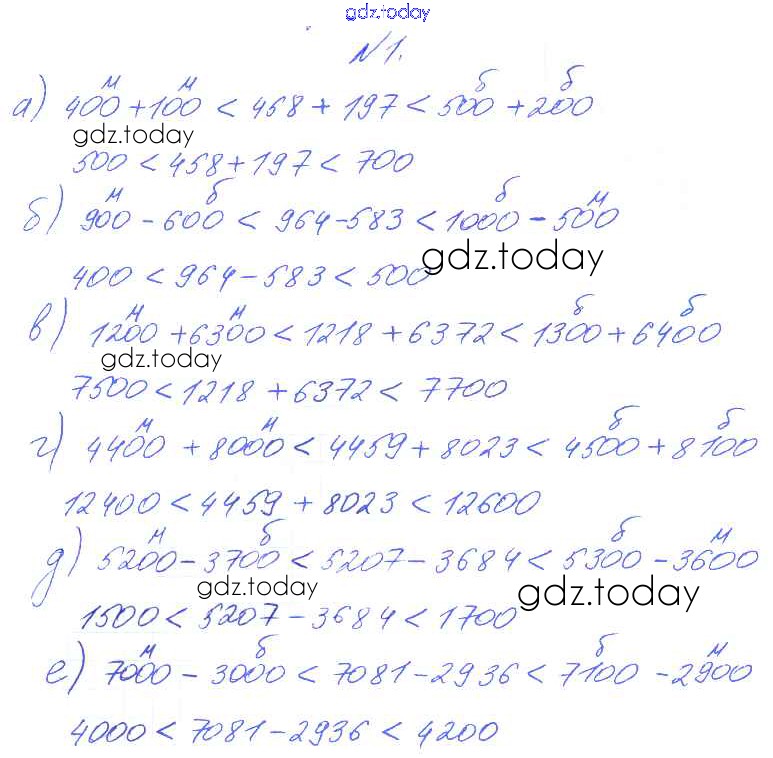 gdz.today
№1.
м м б б
а) 400 + 100 < 458 + 197 < 500 + 200
gdz.today
500 < 458 + 197 < 700
м б б м
б) 900 - 600 < 964 - 583 < 1000 - 500
gdz.today
400 < 964 - 583 < 500
м м б б
в) 1200 + 6300 < 1218 + 6372 < 1300 + 6400
gdz.today
7500 < 1218 + 6372 < 7700
м м б б
г) 4400 + 8000 < 4459 + 8023 < 4500 + 8100
12400 < 4459 + 8023 < 12600
м б б м
д) 5200 - 3700 < 5207 - 3684 < 5300 - 3600
gdz.today gdz.today
1500 < 5207 - 3684 < 1700
м б б м
е) 7000 - 3000 < 7081 - 2936 < 7100 - 2900
4000 < 7081 - 2936 < 4200